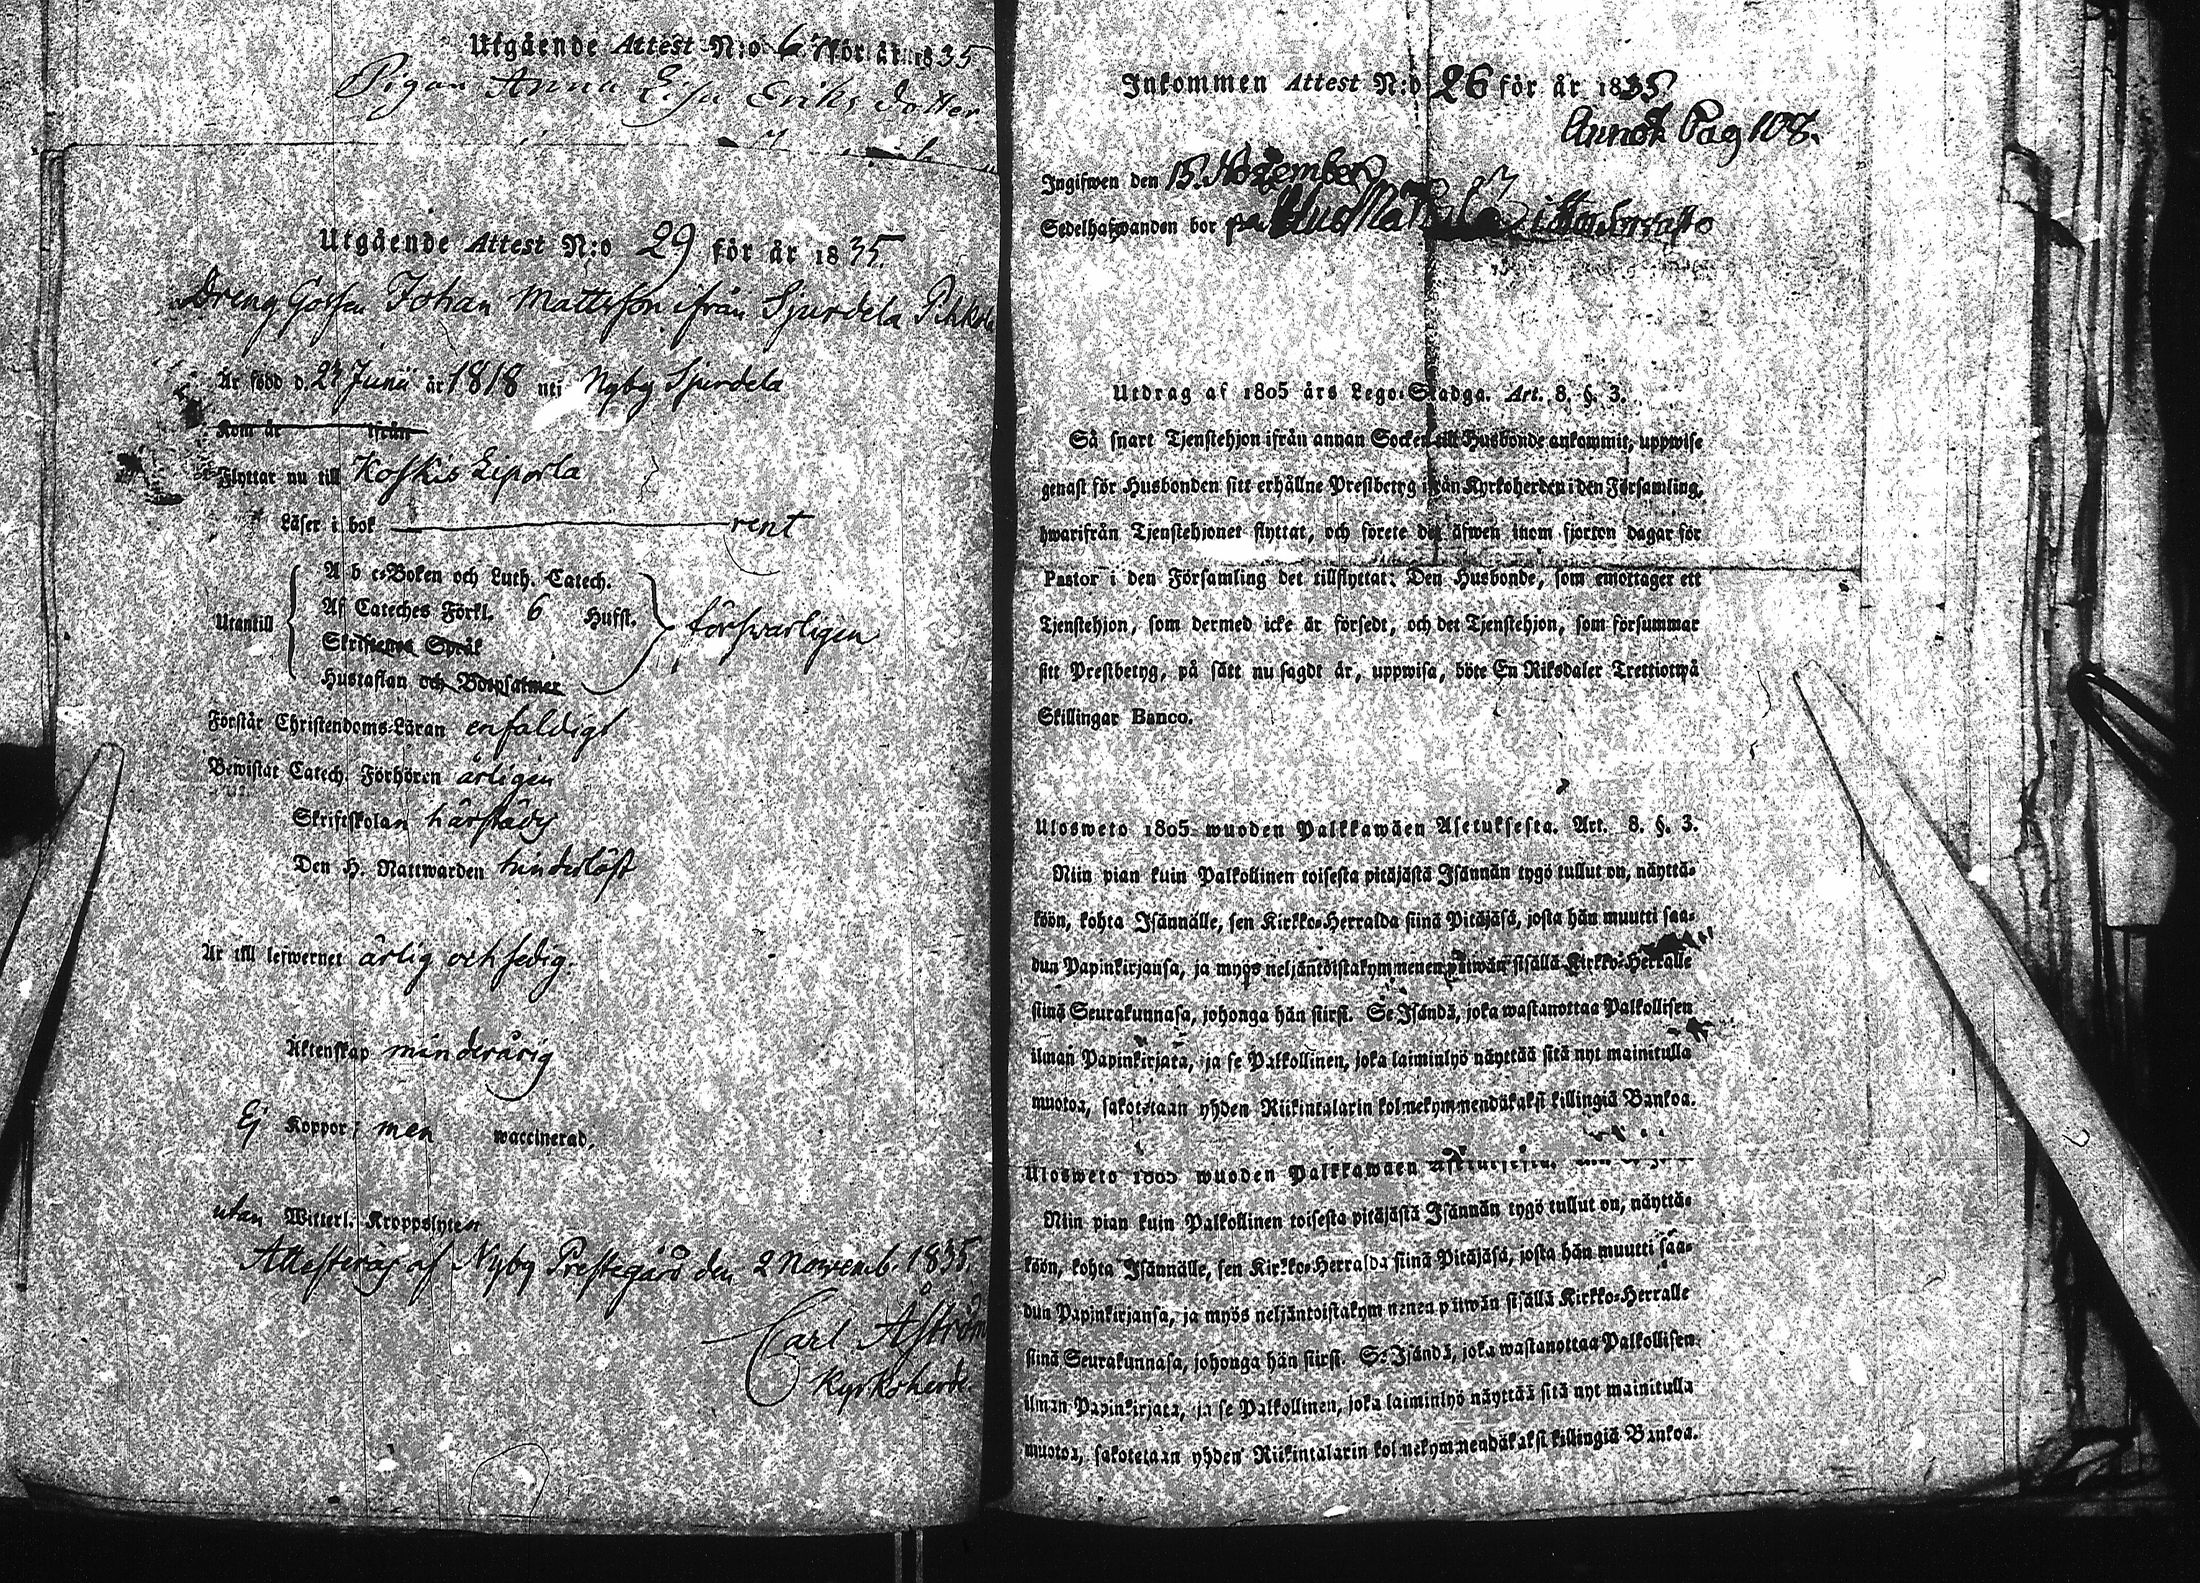 Utgående Attest N:o 67 för år 1835
Pigan Anna Lisa Eriks dotter
Utgående Attest N:o 29 för år 1835.
Dreng Gossen Johan Mattsson ifrån Sjundela Pikkala
Är född d. 27 Junii år 1818 uti Nyby Sjundela
Kom år ifrån
Flyttar nu till Koskis Liporla
Läser i bok rent
Utantill
A b c-Boken och Luth. Catech.
Af Cateches Förkl. 6 Hufst.
Skriftenes Språk
Hustaflan och Botpsalmer
försvarligen
Förstår Christendoms-Läran enfaldigt
Bewistat Catech. Förhören årligen
Skriftskolan härstädes
Den H. Nattwarden hinderlöst
Är till lefwernet ärlig och sedig.
Äktenskap minderårig
Ej Koppor; men waccinerad,
utan Witterl. Kroppslyten
Attesteras af Nyby Prestegård den 2 Novemb. 1835.
Carl Åström
Kyrkoherde
Inkommen Attest N:o 26 för år 1835
Annot. Pag 107.
Ingifwen den 15. November
Sedelhafwanden bor på
Utdrag af 1805 års Lego-Stadga. Art. 8. §. 3.
Så snart Tjenstehjon ifrån annan Socken till Husbonde ankommit, uppwise
genast för Husbonden sitt erhållne Prestbetyg ifrån Kyrkoherden i den Församling,
hwarifrån Tjenstehjonet flyttat, och förete det äfwen inom fjorton dagar för
Pastor i den Församling det tillflyttat; Den Husbonde, som emottager ett
Tjenstehjon, som dermed icke är försedt, och det Tjenstehjon, som försummar
sitt Prestbetyg, på sätt nu sagdt är, uppwisa, böte En Riksdaler Trettiotwå
Skillingar Banco.
Ulosweto 1805 wuoden Palkkawäen Asetuksesta. Art. 8. §. 3.
Niin pian kuin Palkollinen toisesta pitäjästä Isännän tygö tullut on, näyttä-
köön, kohta Isännälle, sen Kirkko-Herralda siinä Pitäjäsä, josta hän muutti saa-
dun Papinkirjansa, ja myös neljäntoistakymmenen päiwän sisällä Kirkko-Herralle
siinä Seurakunnasa, johonga hän siirst. Se Isändä, joka wastanottaa Palkollisen
ilman Papinkirjata, ja se Palkollinen, joka laiminlyö näyttää sitä nyt mainitulla
muotoa, sakotetaan yhden Riikintalarin kolmekymmendäkaksi killingiä Bankoa.
Ulosweto 1805 wuoden Palkkawäen Asetuksesta.
Niin pian kuin Palkollinen toisesta pitäjästä Isännän tygö tullut on, näyttä-
köön, kohta Isännälle, sen Kirkko-Herralda siinä Pitäjäsä, josta hän muutti saa-
dun Papinkirjansa, ja myös neljäntoistakymmenen päiwän sisällä Kirkko-Herralle
siinä Seurakunnasa, johonga hän siirst. Se Isändä, joka wastanottaa Palkollisen
ilman Papinkirjata, ja se Palkollinen, joka laiminlyö näyttää sitä nyt mainitulla
muotoa, sakotetaan yhden Riikintalarin kolmekymmendäkaksi killingiä Bankoa.